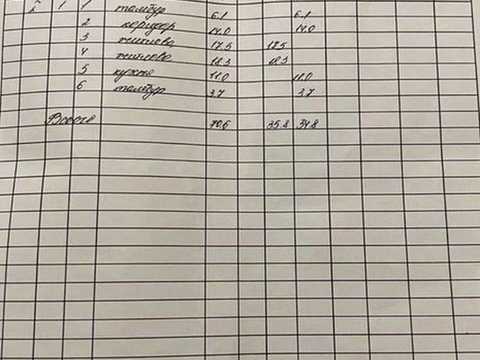 2 1 1 тамбур 6.1 6.1
2 коридор 14.0 14.0
3 17.5 17.5
4 18.3 18.3
5 кухня 11.0 11.0
6 тамбур 3.7 3.7
70.6 35.8 34.8